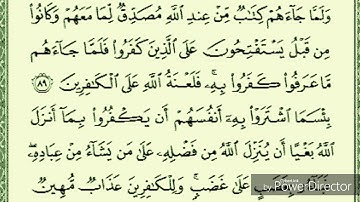 وَلَمَّا جَآءَهُمْ كِتَٰبٌ مِّنْ عِندِ ٱللَّهِ مُصَدِّقٌ لِّمَا مَعَهُمْ وَكَانُوا۟
مِن قَبْلُ يَسْتَفْتِحُونَ عَلَى ٱلَّذِينَ كَفَرُوا۟ فَلَمَّا جَآءَهُم
مَّا عَرَفُوا۟ كَفَرُوا۟ بِهِۦ ۚ فَلَعْنَةُ ٱللَّهِ عَلَى ٱلْكَٰفِرِينَ ٨٩
بِئْسَمَا ٱشْتَرَوْا۟ بِهِۦٓ أَنفُسَهُمْ أَن يَكْفُرُوا۟ بِمَآ أَنزَلَ
ٱللَّهُ بَغْيًا أَن يُنَزِّلَ ٱللَّهُ مِن فَضْلِهِۦ عَلَىٰ مَن يَشَآءُ مِنْ عِبَادِهِۦ ۖ
بِغَضَبٍ عَلَىٰ غَضَبٍ ۚ وَلِلْكَٰفِرِينَ عَذَابٌ مُّهِينٌ
PowerDirector